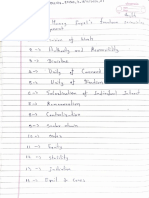 Henry Fayol's fourteen
1 → Division of Work
2 → Authority and Responsibility
3 → Discipline
4 → Unity of Command
5 → Unity of Direction
6 → Subordination of Individual Interest
7 → Remuneration
8 → Centralisation
9 → Scalar chain
10 → Order
11 → Equity
12 → Stability
13 → Initiative
14 → Esprit de Corps